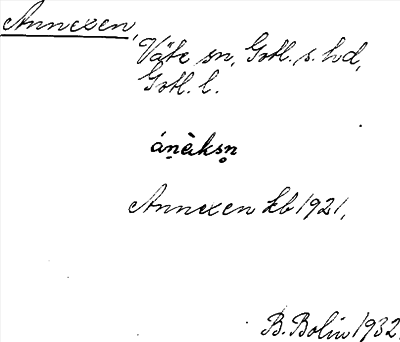 Annexen,
Väte sn, Gotl. s. hd,
Gotl. l.
áṉèksn̥
Annexen kb 1921,
B. Bolin 1932.